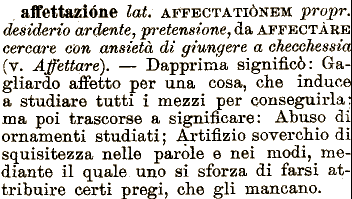 affettazióne lat. AFFECTATIÒNEM propr.
desiderio ardente, pretensione, da AFFECTÀRE
cercare con ansietà di giungere a checchessia
(v. Affettare). — Dapprima significò: Ga-
gliardo affetto per una cosa, che induce
a studiare tutti i mezzi per conseguirla:
ma poi trascorse a significare: Abuso di
ornamenti studiati; Artifizio soverchio di
squisitezza nelle parole e nei modi, me-
diante il quale uno si sforza di farsi at-
tribuire certi pregi, che gli mancano.